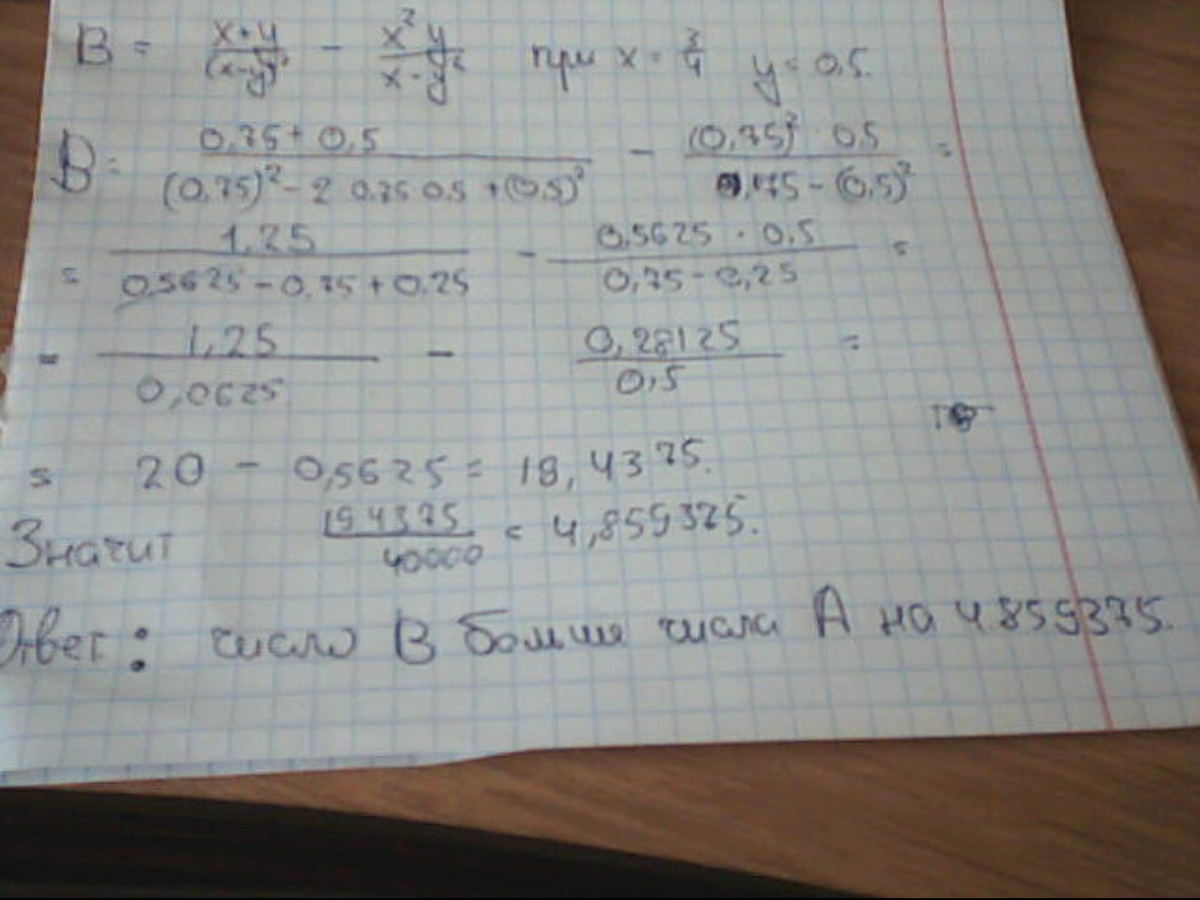 B = x+y/(x-y)² - x²y/x-y² при x = 3/4 y = 0,5.
B = 0,75 + 0,5/(0,75)² - 2 0,75 0,5 + (0,5)² - (0,75)² · 0,5/0,75 - (0,5)² =
= 1,25/0,5625 - 0,75 + 0,25 - 0,5625 · 0,5/0,75 - 0,25 =
= 1,25/0,0625 - 0,28125/0,5 =
= 20 - 0,5625 = 19,4375.
Значит 194375/40000 = 4,859375.
Ответ: число B больше числа A на 4 859375.